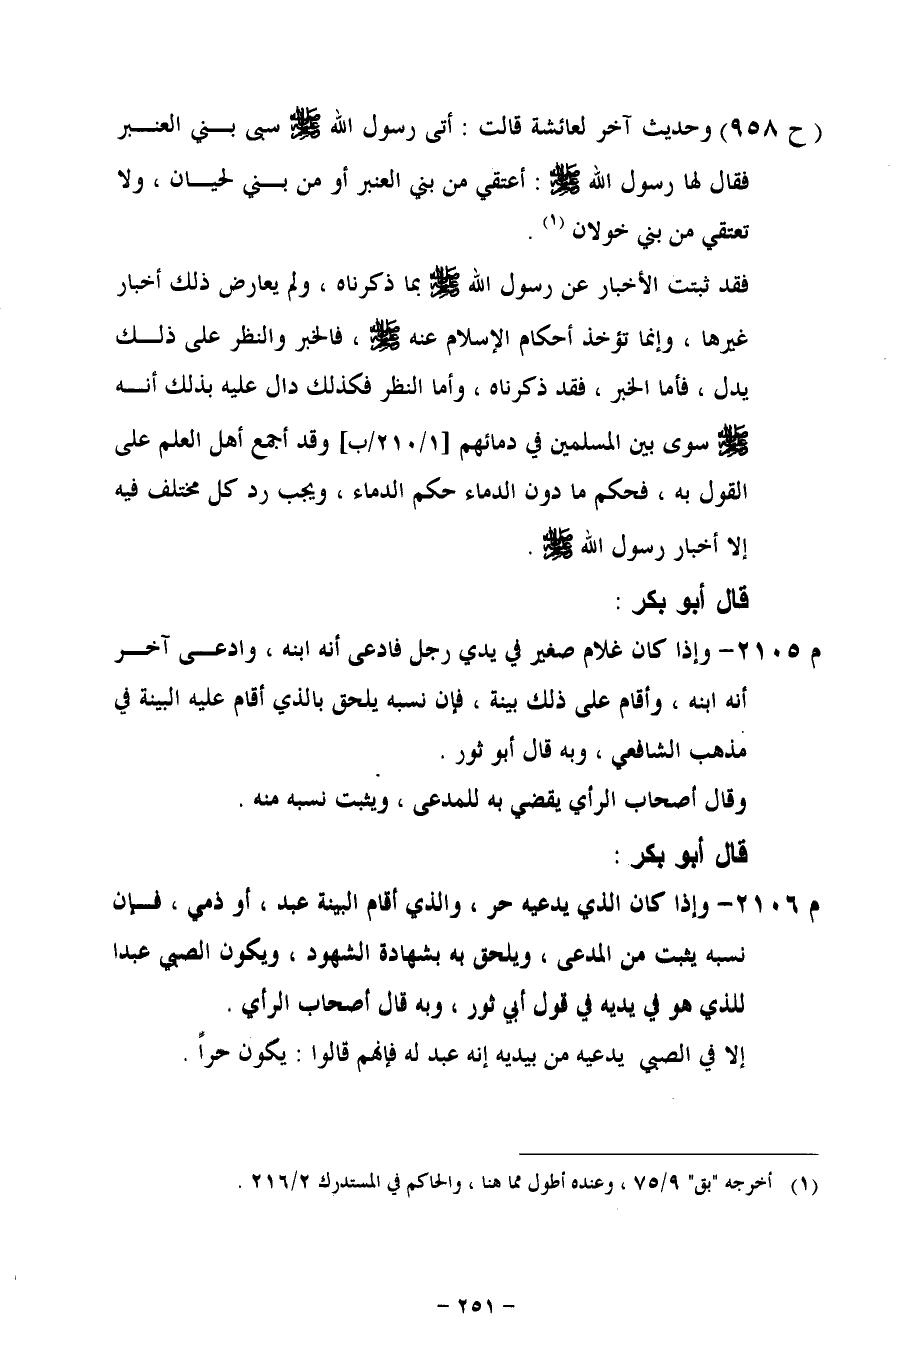 ( ح ٩٥٨) وحديث آخر لعائشة قالت : أتى رسول الله ﷺ سبى بـــني العنـــبر
فقال لها رسول الله ﷺ : أعتقي من بني العنبر أو من بـــني لحيـــان ، ولا
تعتقي من بني خولان (١) .
فقد ثبتت الأخبار عن رسول الله ﷺ بما ذكرناه ، ولم يعارض ذلك أخبار
غيرها ، وإنما تؤخذ أحكام الإسلام عنه ﷺ ، فالخبر والنظر على ذلـــك
يدل ، فأما الخبر ، فقد ذكرناه ، وأما النظر فكذلك دال عليه بذلك أنـــه
ﷺ سوى بين المسلمين في دمائهم [٢١٠/١/ب] وقد أجمع أهل العلم على
القول به ، فحكم ما دون الدماء حكم الدماء ، ويجب رد كل مختلف فيه
إلا أخبار رسول الله ﷺ .
قال أبو بكر :
م ٢١٠٥- وإذا كان غلام صغير في يدي رجل فادعى أنه ابنه ، وادعـــى آخـــر
أنه ابنه ، وأقام على ذلك بينة ، فإن نسبه يلحق بالذي أقام عليه البينة في
مذهب الشافعي ، وبه قال أبو ثور .
وقال أصحاب الرأي يقضي به للمدعى ، ويثبت نسبه منه .
قال أبو بكر :
م ٢١٠٦- وإذا كان الذي يدعيه حر ، والذي أقام البينة عبد ، أو ذمي ، فـــإن
نسبه يثبت من المدعى ، ويلحق به بشهادة الشهود ، ويكون الصبي عبدا
للذي هو في يديه في قول أبي ثور ، وبه قال أصحاب الرأي .
إلا في الصبي يدعيه من بيديه إنه عبد له فإنهم قالوا : يكون حراً .
(١) أخرجه "بق" ٧٥/٩ ، وعنده أطول مما هنا ، والحاكم في المستدرك ٢١٦/٢ .
- ٢٥١ -